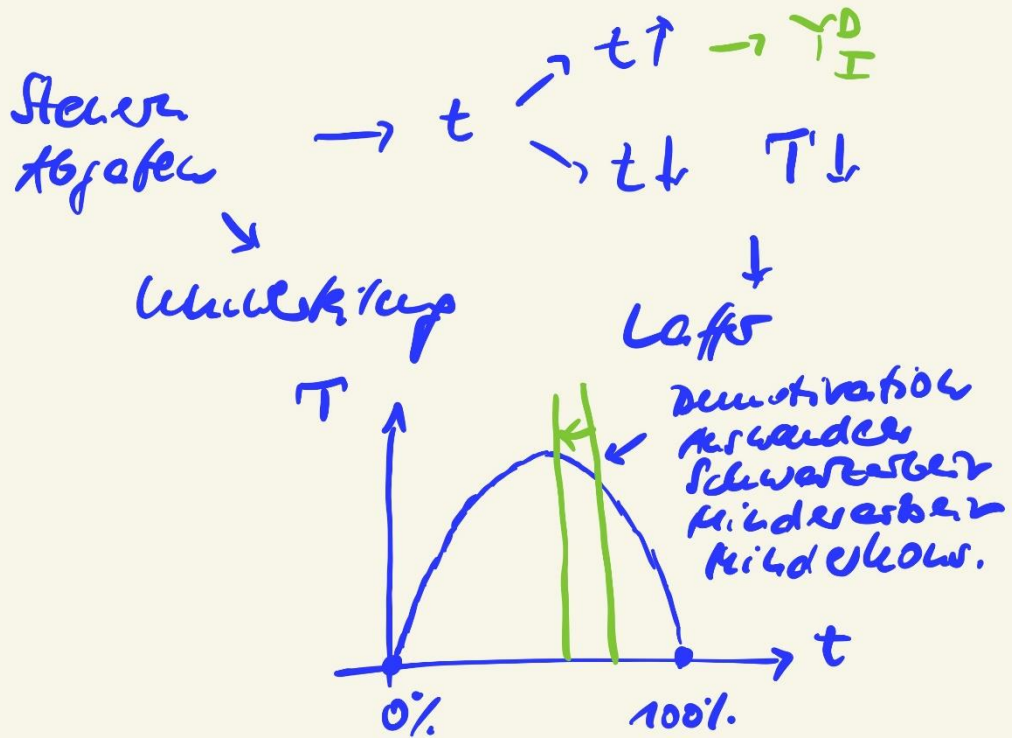 Steuern
Abgaben
→ t
t↑ → Y D
I
t↓ T↓
Umverteilung
Laffer
T
Demotivation
Auswandern
Schwarzarbeit
Minderarbeit
Minderkons.
t
0%
100%